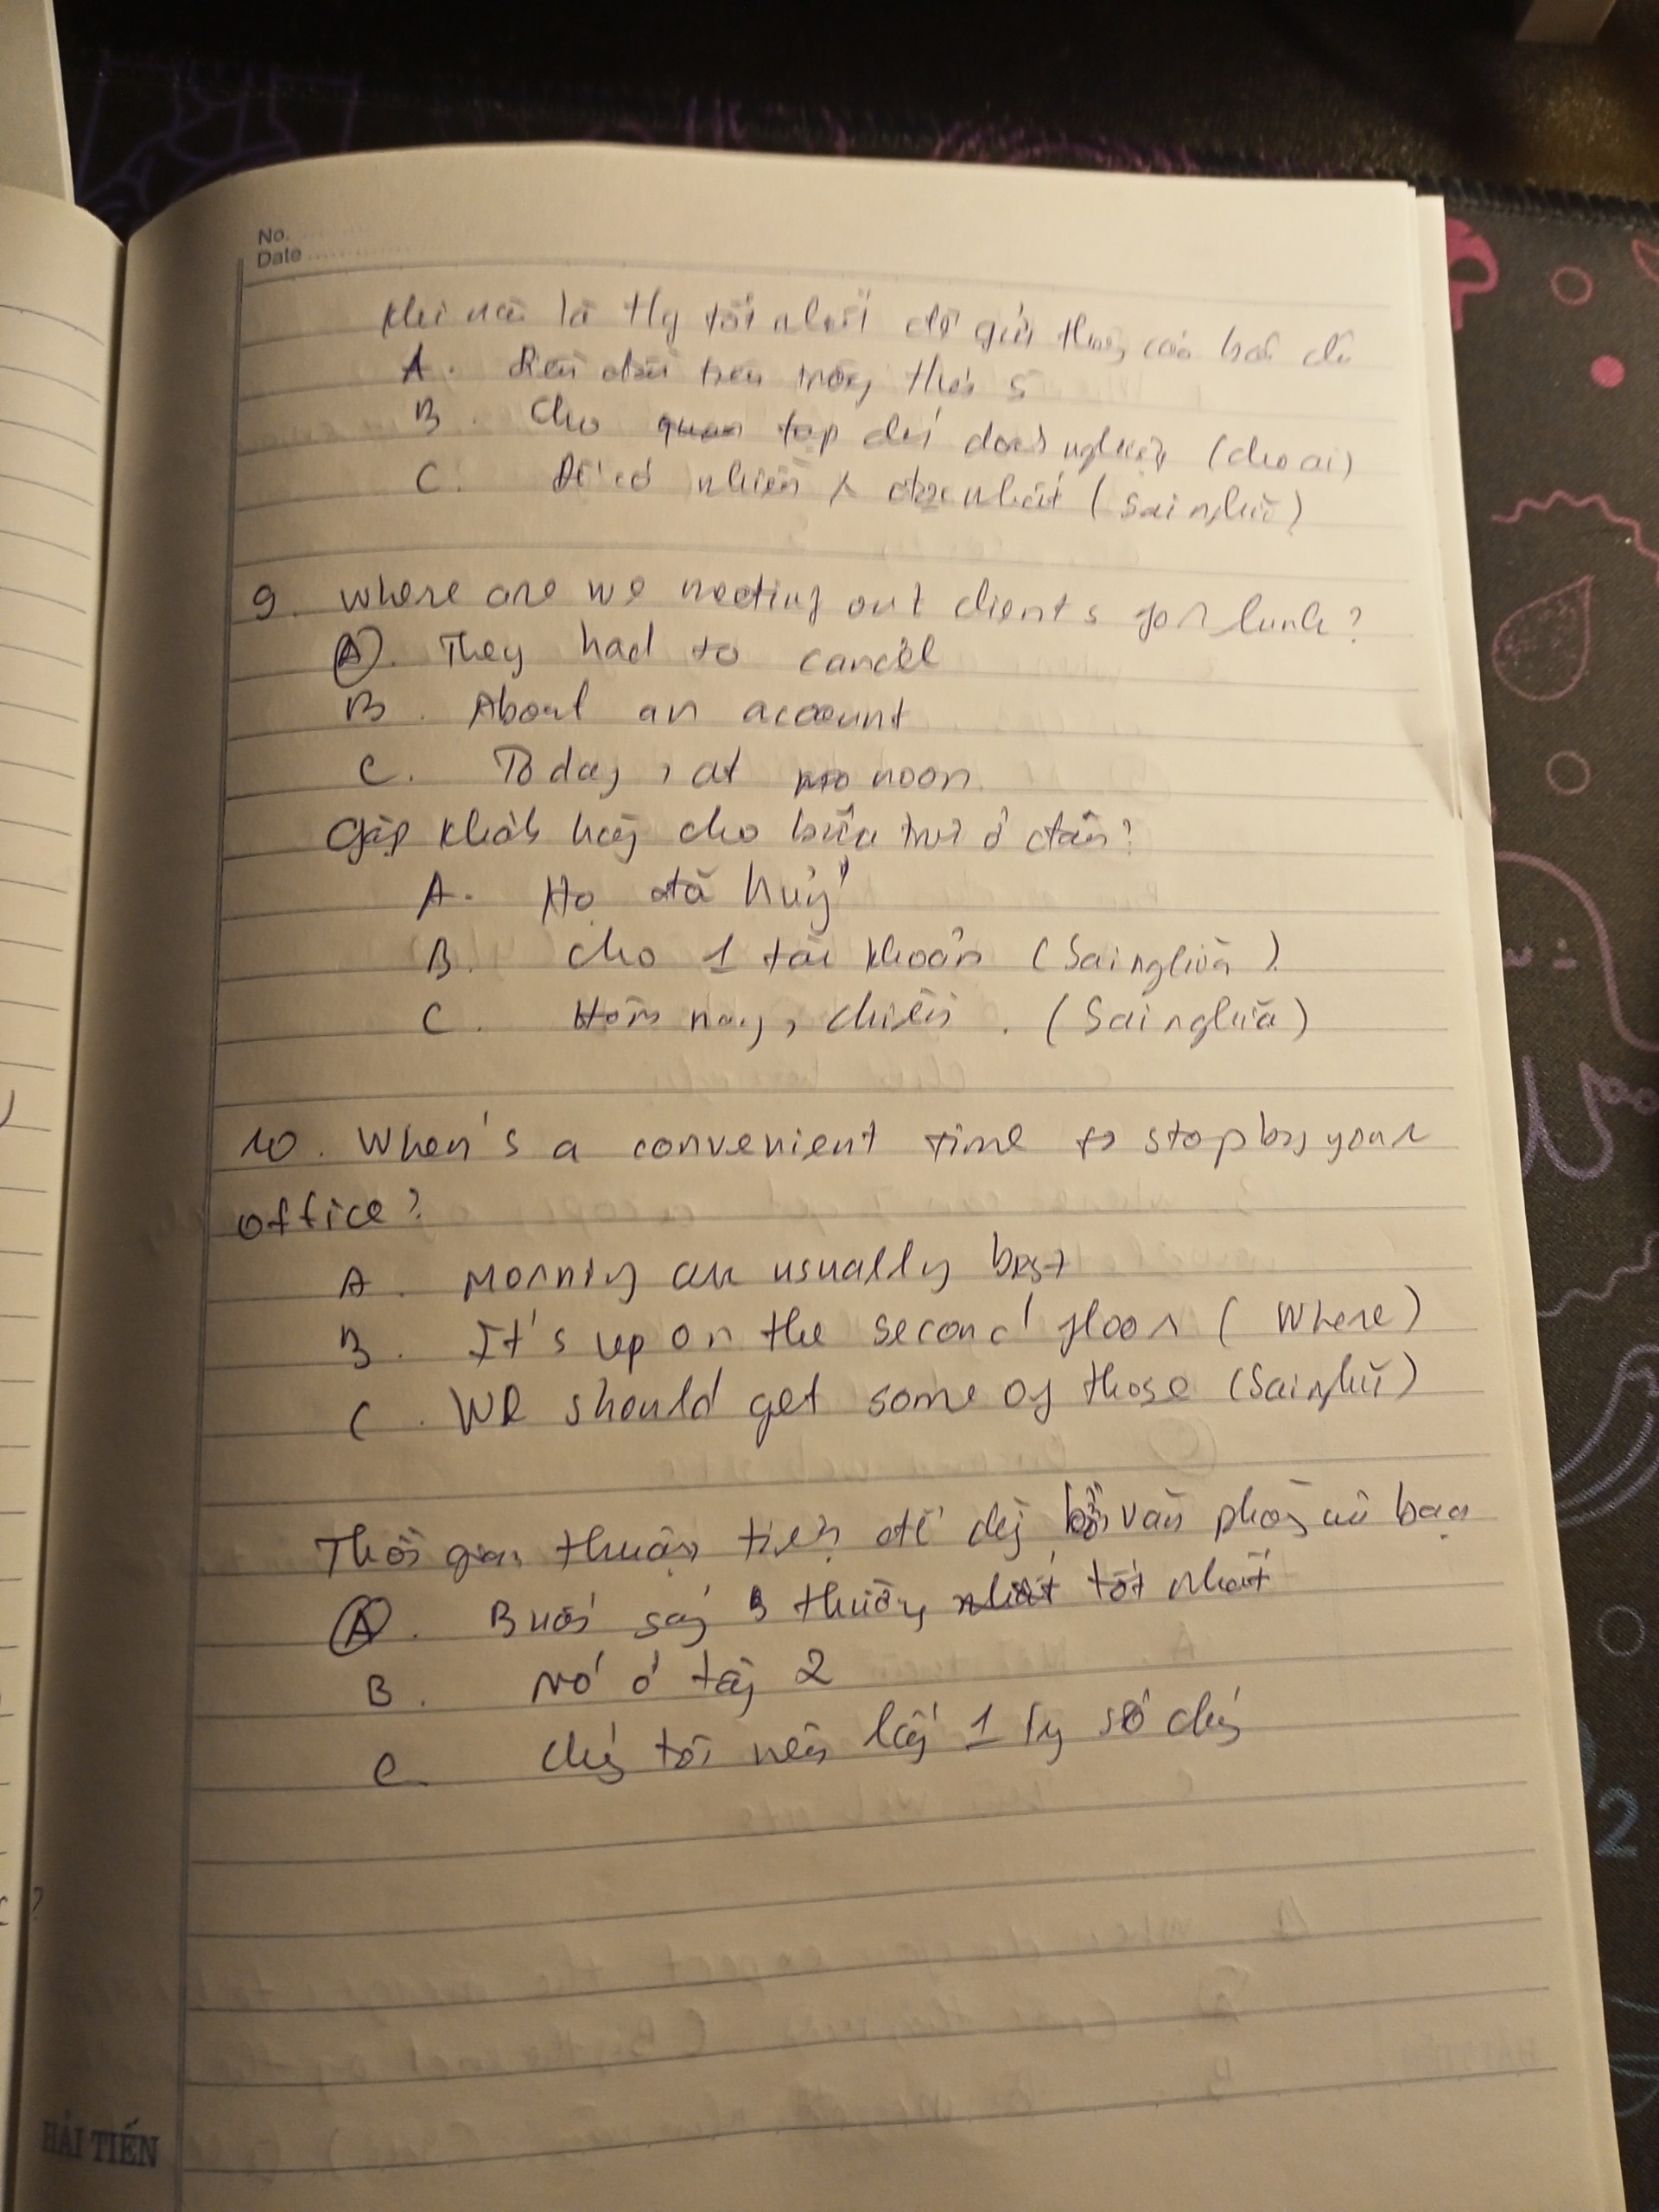 No.
Date
Khi nào là tốt nhất để gửi thông cáo báo
A. trong tháng 5
B. Cho tạp chí doanh nghiệp (cho ai)
C. Để có nhiều nhất (Sai nghĩa)
9. where are we meeting out clients for lunh?
A. They had to cancel
B. About an account
C. Today, at noon
Gặp khách hàng cho bữa trưa ở đâu?
A. Họ đã huỷ
B. cho 1 tài khoản (Sai nghĩa)
C. Hôm nay, chiều. (Sai nghĩa)
10. When's a convenient time to stop by your
office?
A. Morning are usually best
B. It's up on the second floor (Where)
C. We should get some of those (Sai nghĩa)
Thời gian thuận tiện để văn phòng của bạn
A. Buổi sáng thường tốt nhất
B. Nó ở tầng 2
C. chúng tôi nên lấy 1 số chúng
HẢI TIẾN
2